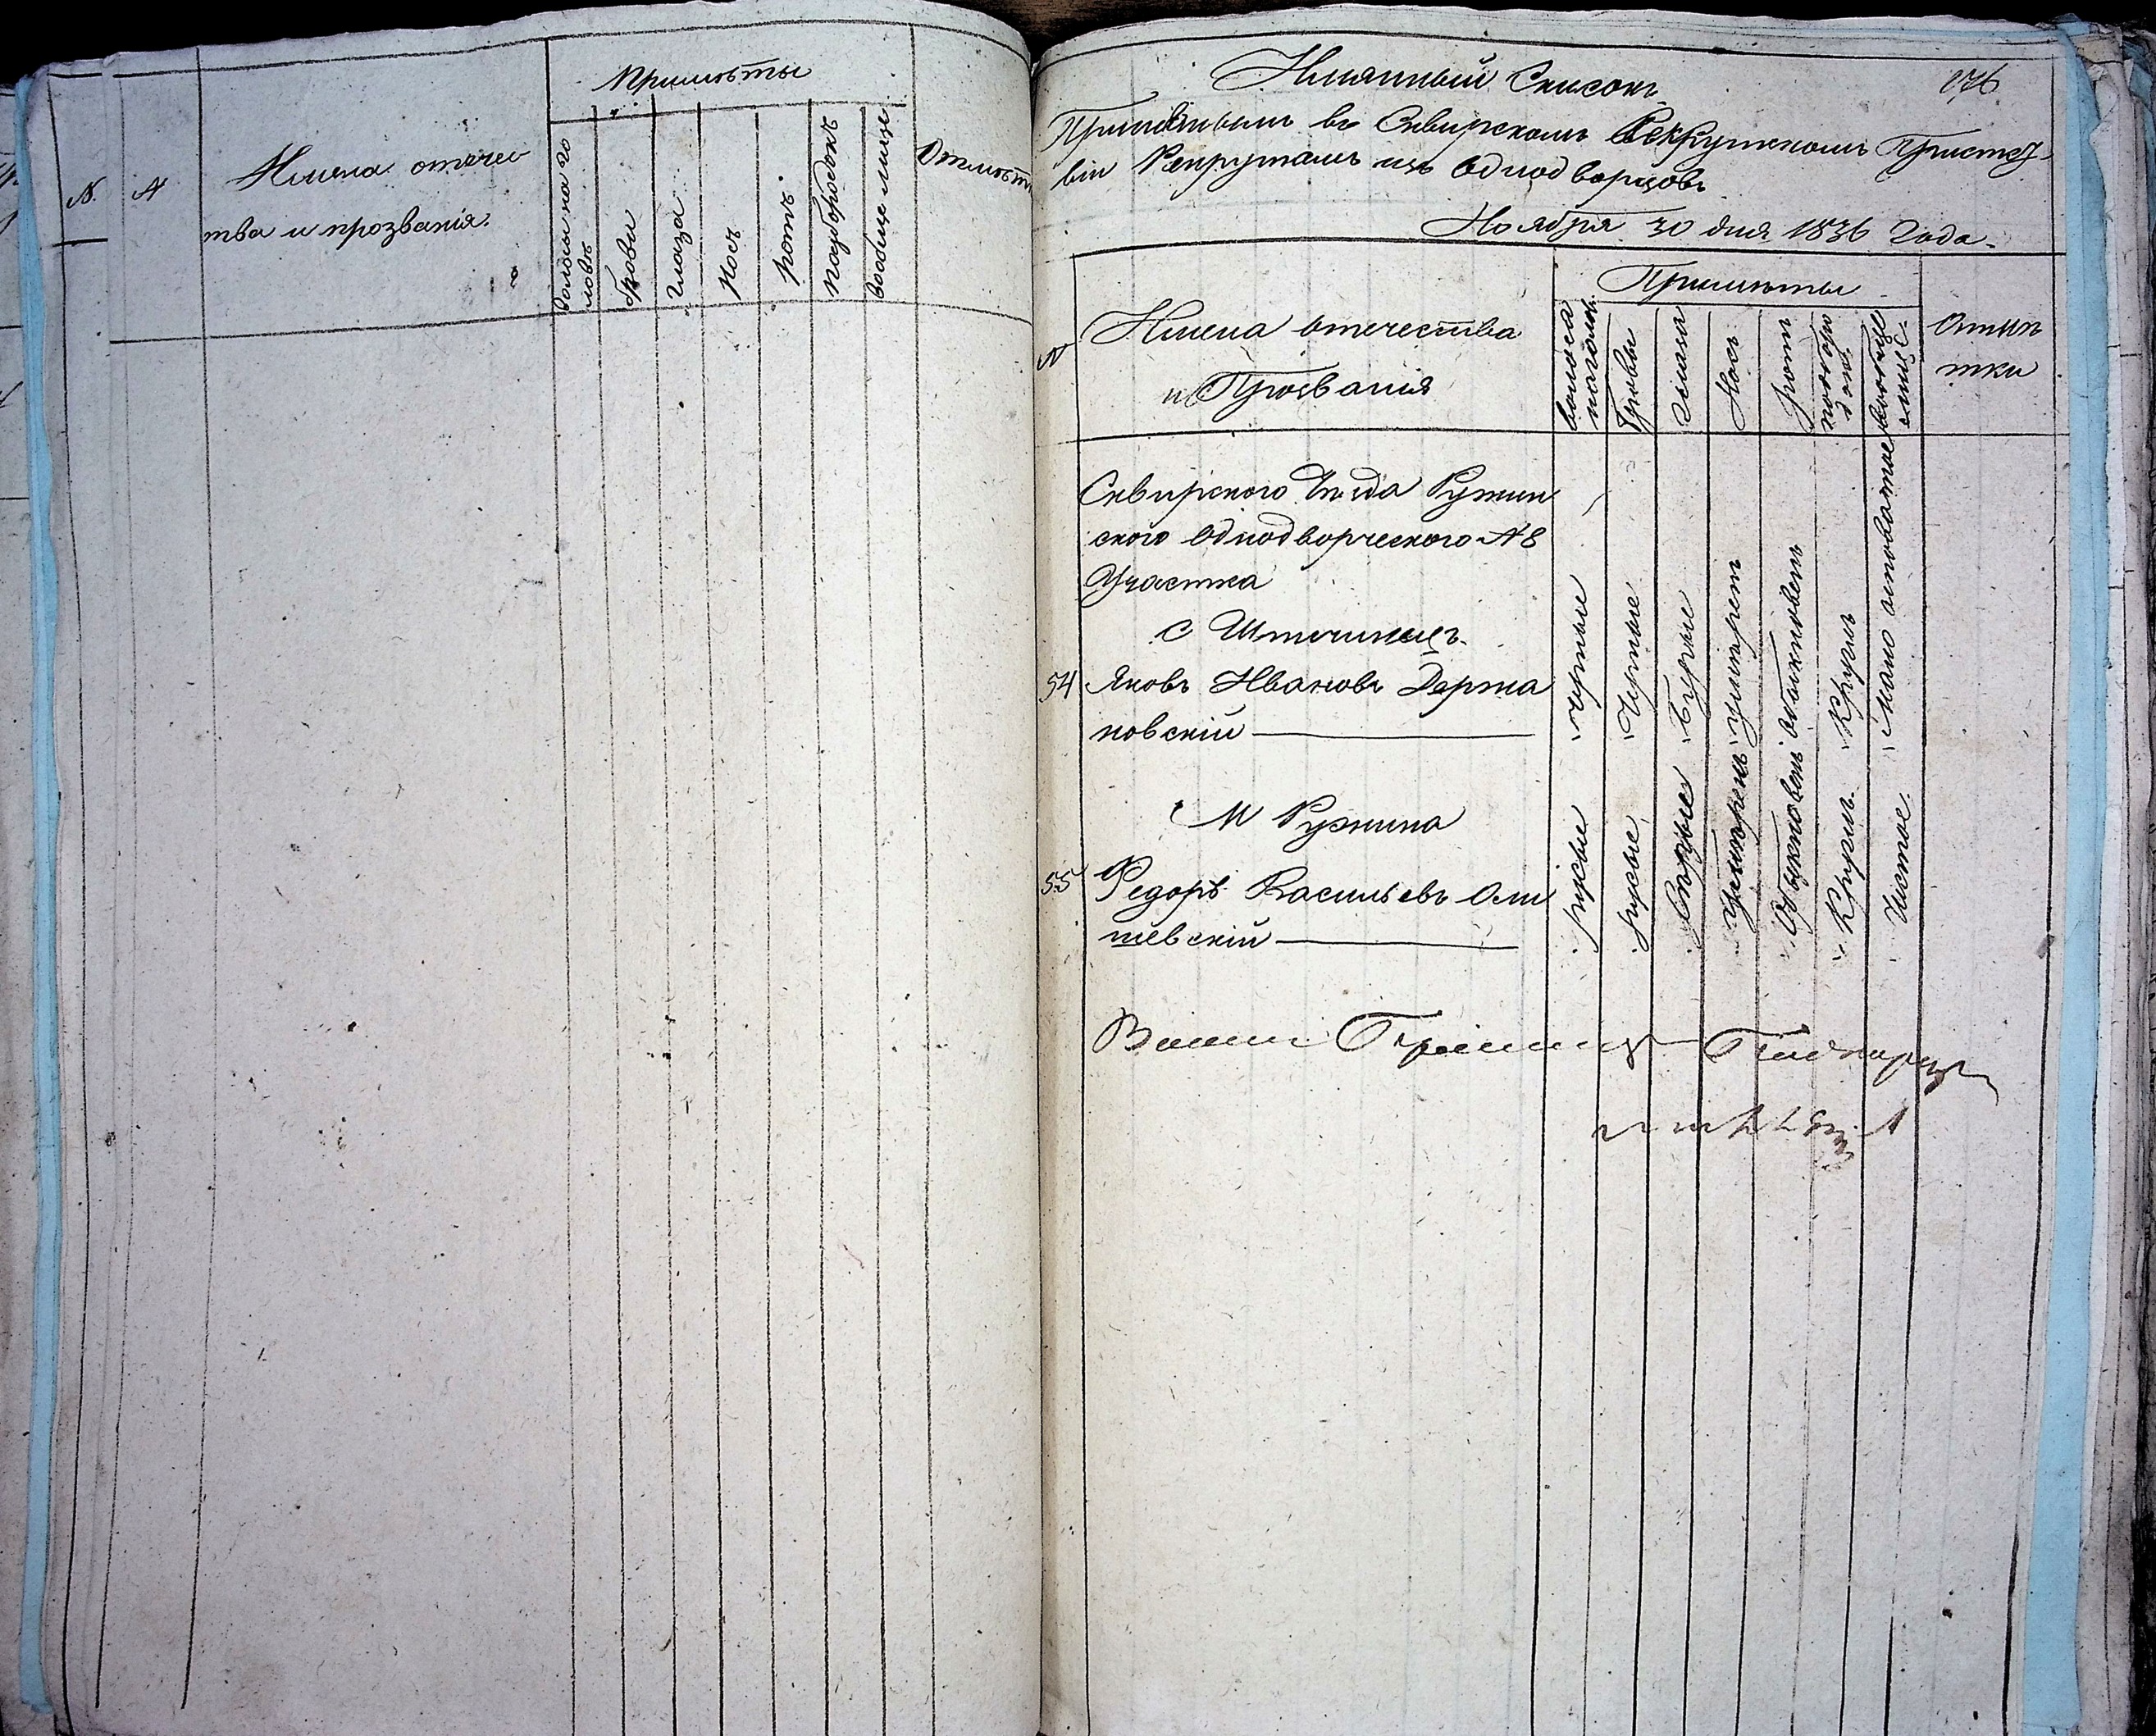 Примѣты
№
№
Имена отечес
тва и прозванія.
волосы на го
ловѣ
брови
глаза
носъ
ротъ
подбородокъ
вообще лице
Отмѣт
Имянный Списокъ
176
Принятымъ въ Сквирскомъ Рекрутскомъ Присутст
віи Рекрутамъ изъ Однодворцовъ
Ноября 30 дня 1836 Года.
№
Имена Отечества
и Прозванія
Примѣты
волоса
на головѣ
Бровы
Глаза
Носъ
ротъ
подборо
докъ
вообще
лице
Отмѣ
тки
Сквирского Уѣзда Ружин
ского Однодворческого №8
Участка
С
54
Яковъ Ивановъ Держа
новскій
черные
Черные
Бурые
умѣрен
обыкновенъ
Круглъ
Мало
М Ружина
55
Федоръ Васильевъ Оли
шевскій
русые
русые
Сѣрые
умѣренъ
Обыкновенъ
Круглъ
Чистое